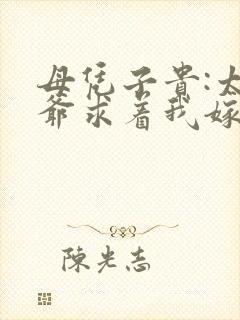 母凭子贵:太
爷求着我嫁
陈光志